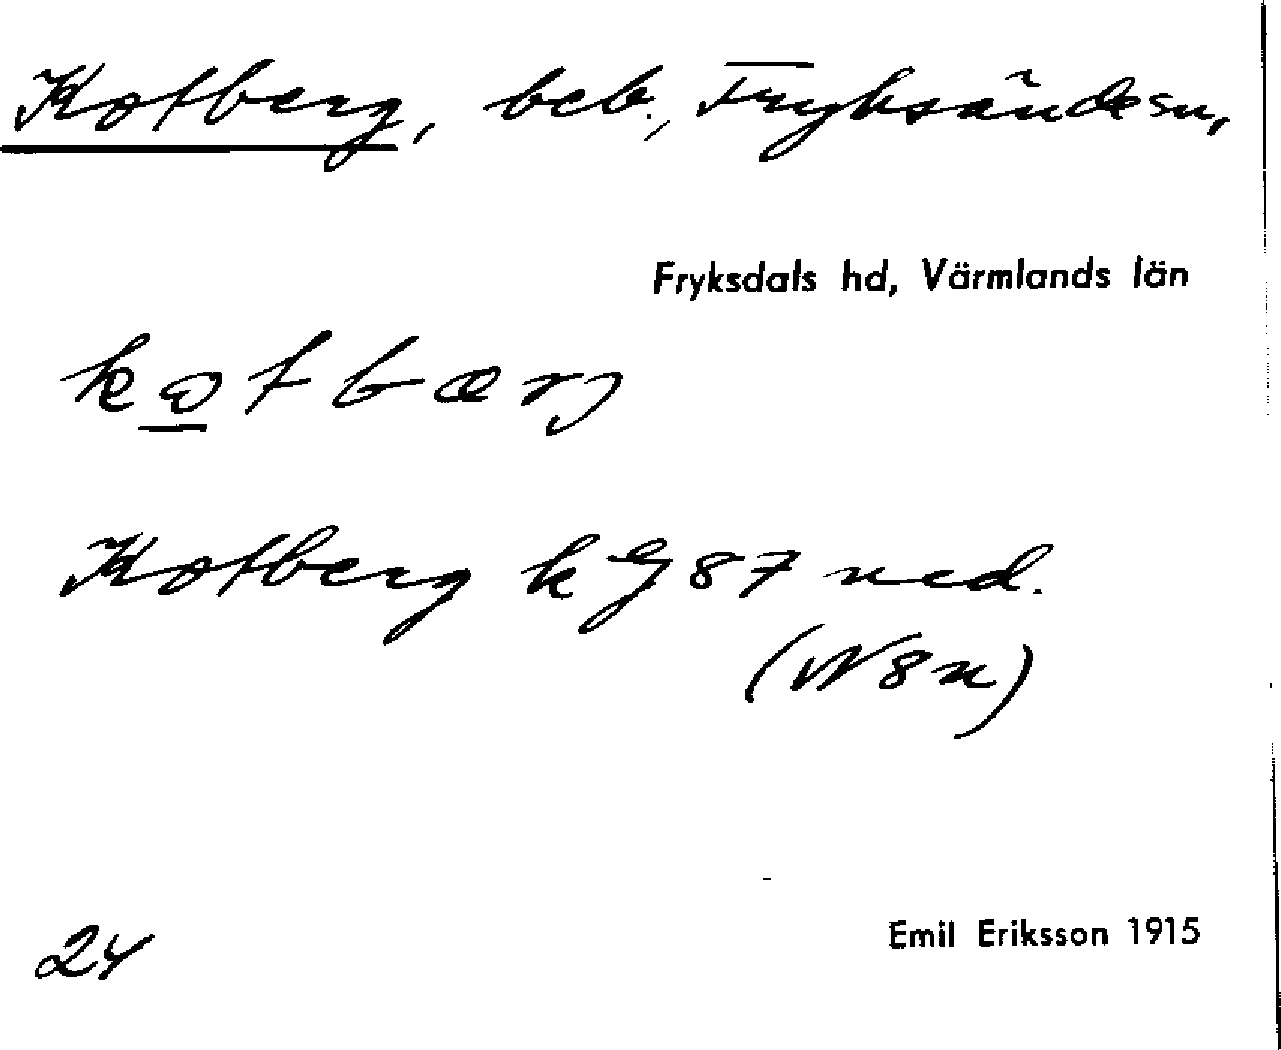 Kotberg, beb., Fryksände sn,
Fryksdals hd, Värmlands län
kotbærj
Kotberg k G 87 ned.
(W 8 n)
Emil Eriksson 1915
24